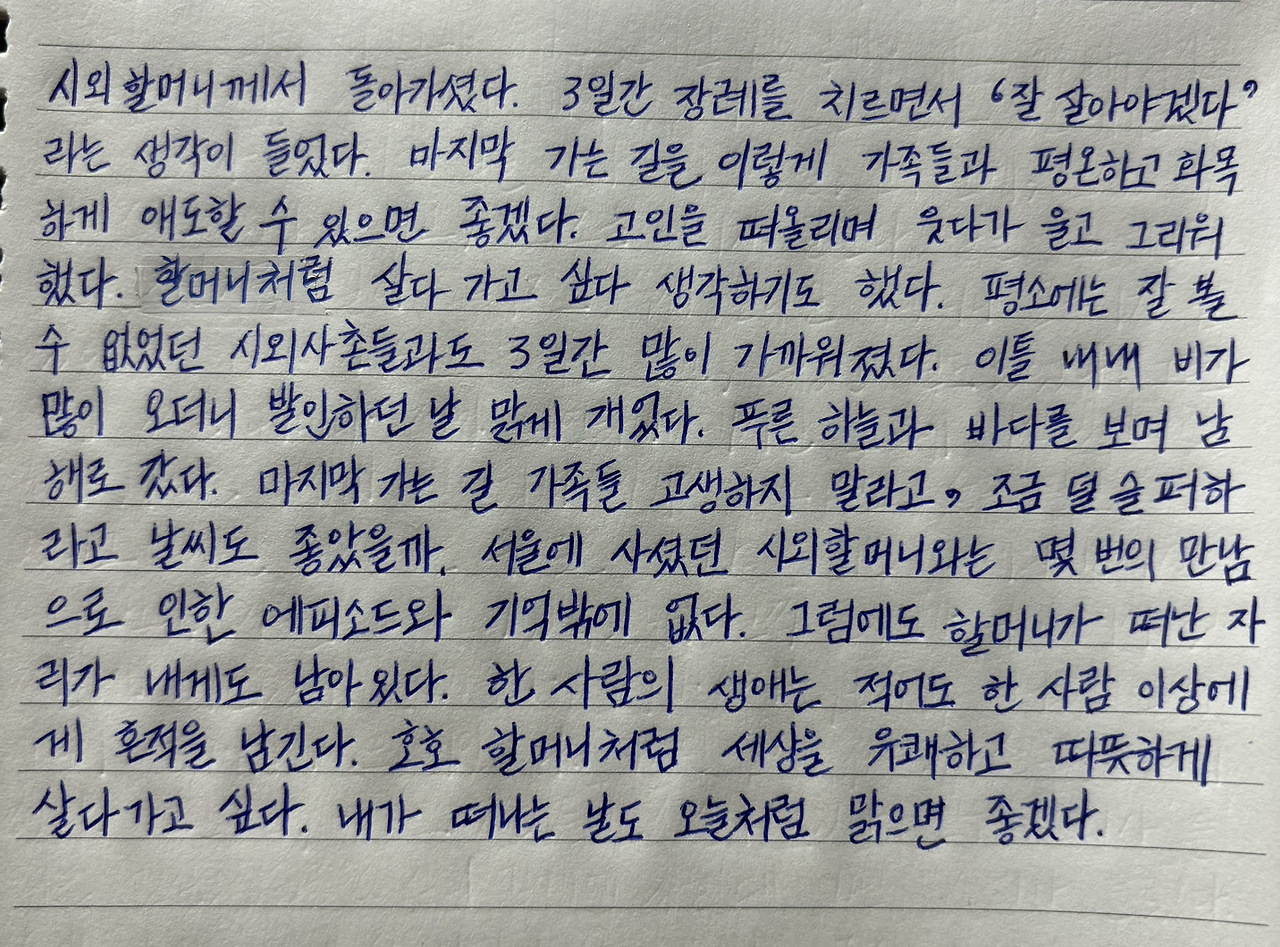 시외할머니께서 돌아가셨다. 3일간 장례를 치르면서 ‘잘 살아야겠다’
라는 생각이 들었다. 마지막 가는 길을 이렇게 가족들과 평온하고 화목
하게 애도할 수 있으면 좋겠다. 고인을 떠올리며 웃다가 울고 그리워
했다. 할머니처럼 살다 가고 싶다 생각하기도 했다. 평소에는 잘 볼
수 없었던 시외사촌들과도 3일간 많이 가까워졌다. 이틀 내내 비가
많이 오더니 발인하던 날 맑게 개었다. 푸른 하늘과 바다를 보며 남
해로 갔다. 마지막 가는 길 가족들 고생하지 말라고, 조금 덜 슬퍼하
라고 날씨도 좋았을까. 서울에 사셨던 시외할머니와는 몇 번의 만남
으로 인한 에피소드와 기억밖에 없다. 그럼에도 할머니가 떠난 자
리가 내게도 남아있다. 한 사람의 생애는 적어도 한 사람 이상에
게 흔적을 남긴다. 호호 할머니처럼 세상을 유쾌하고 따뜻하게
살다가고 싶다. 내가 떠나는 날도 오늘처럼 맑으면 좋겠다.